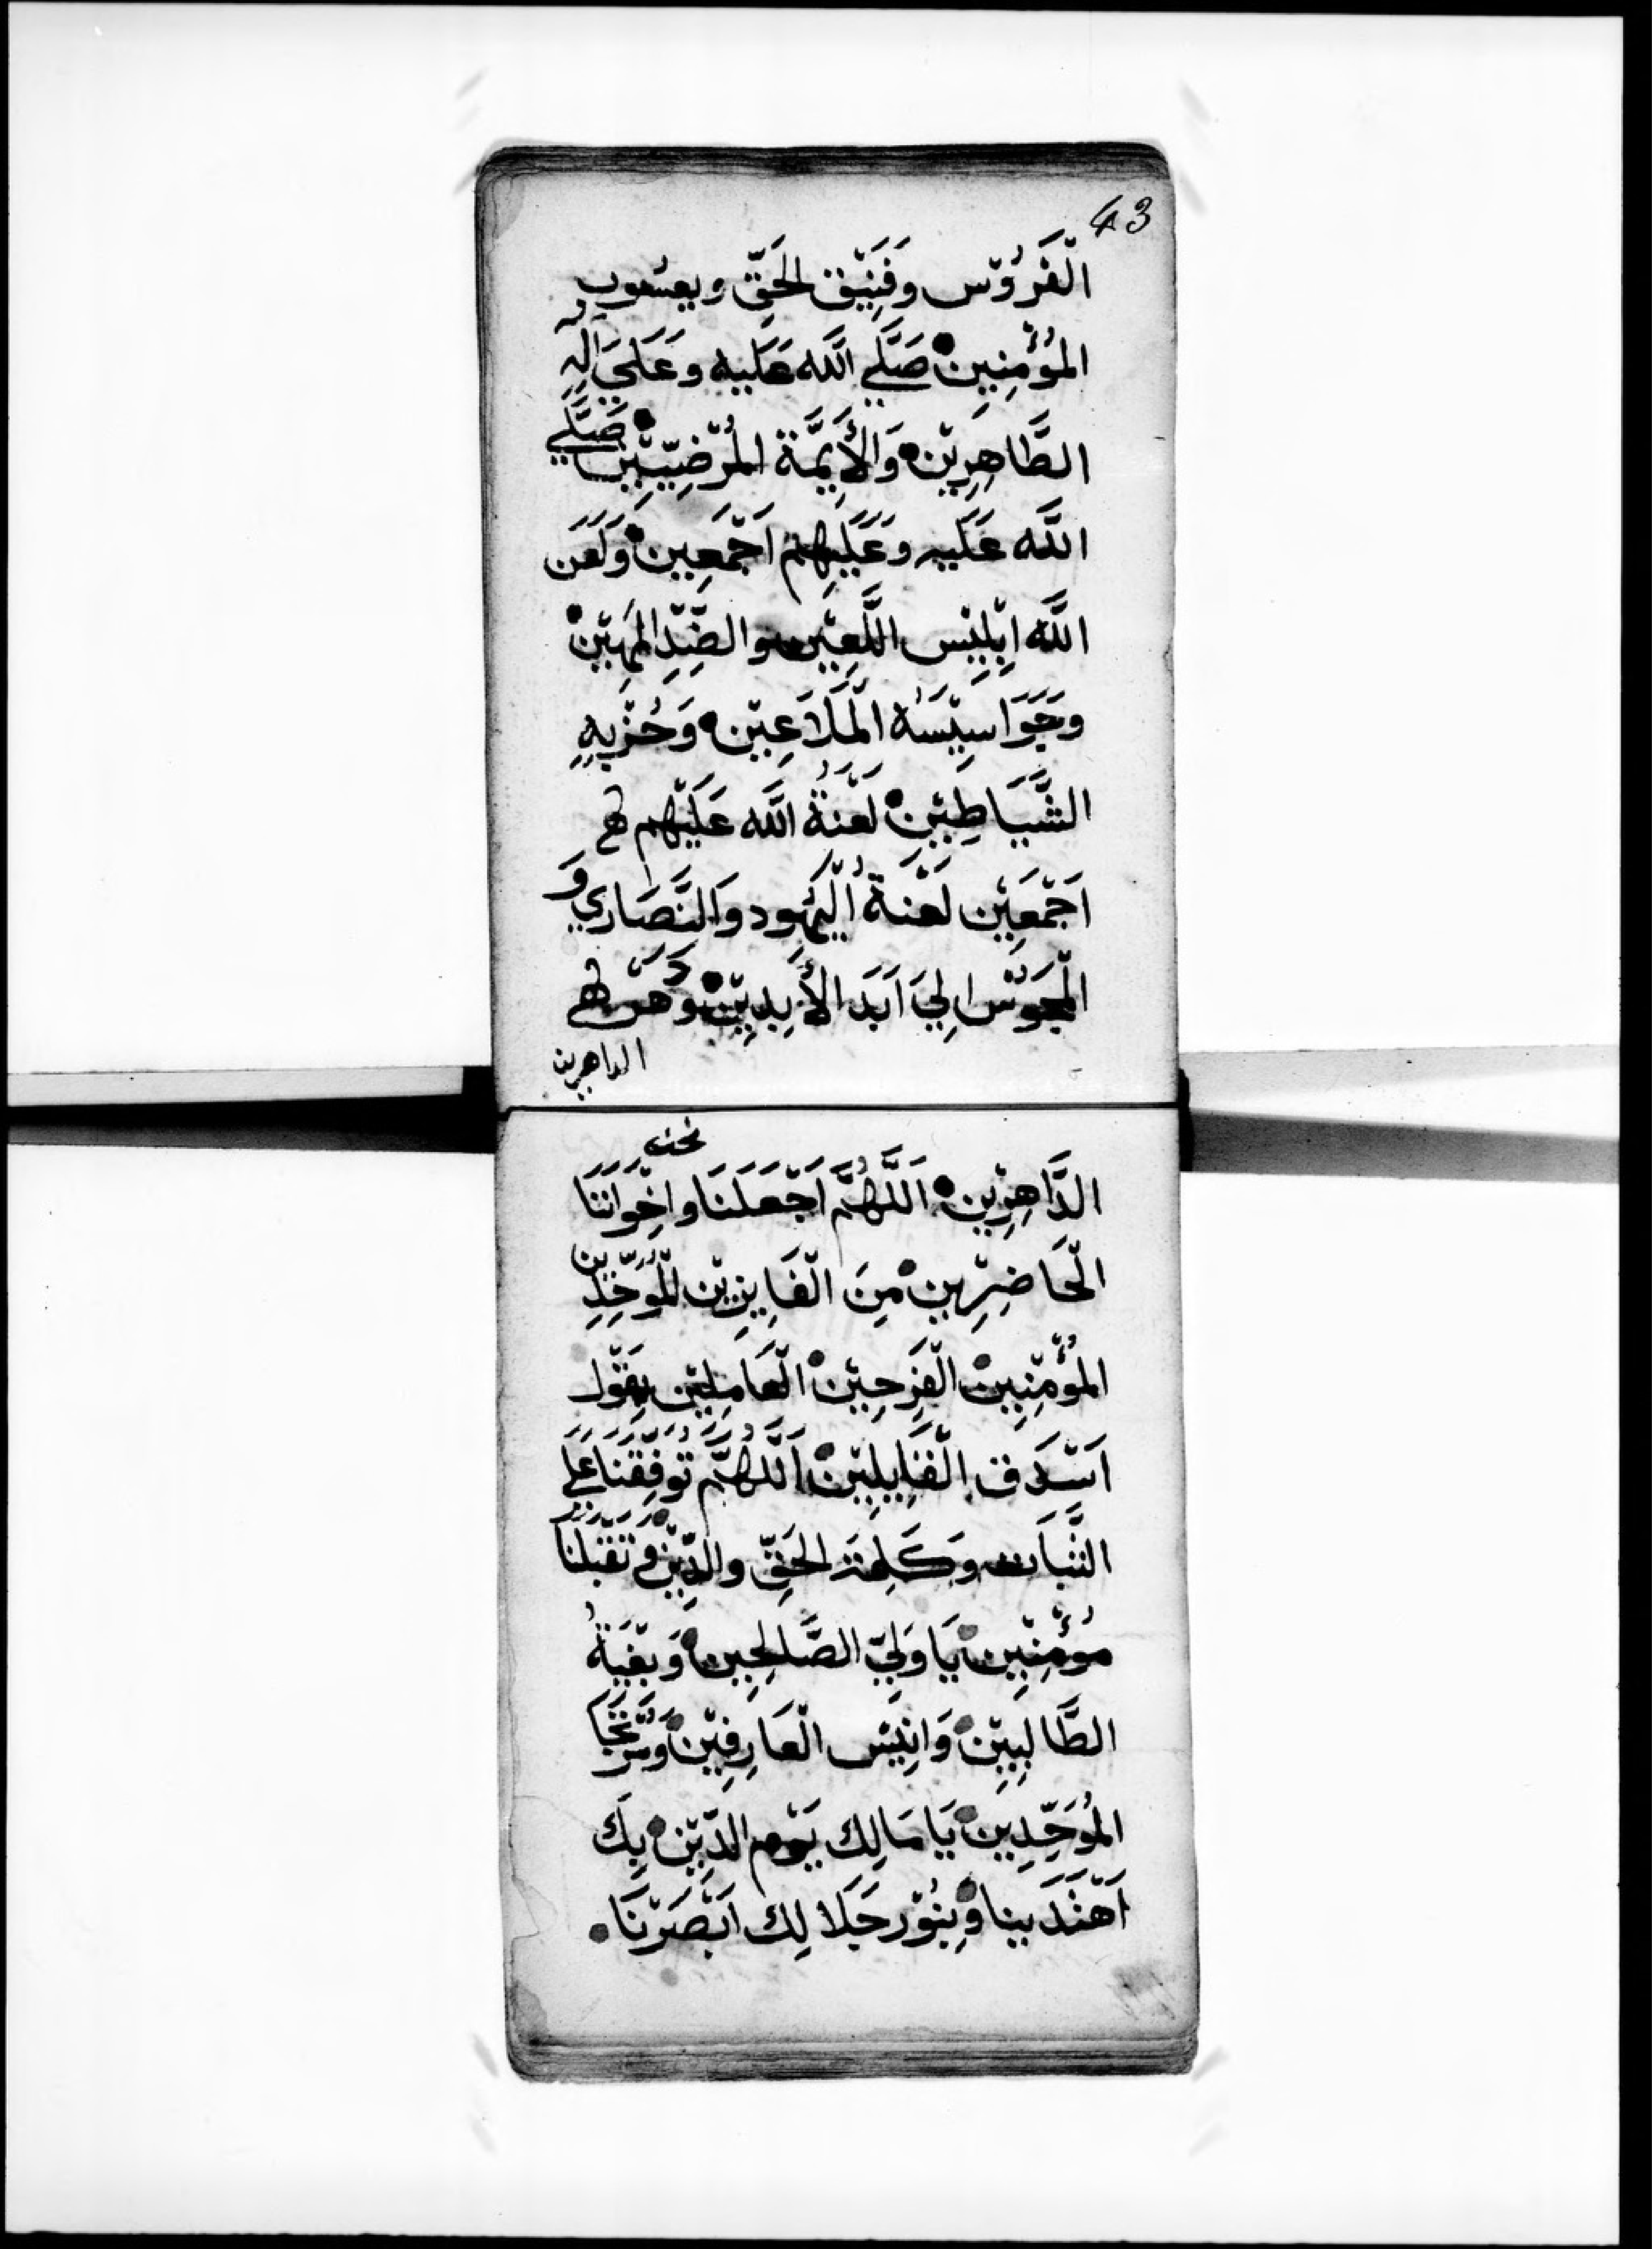 43
الْفَرُوْس وَفَنِيْق الحَقّ ويعسُوب
المُؤْمِنِين صَلَّي اللَّه عَلَيه وَعَلَيَ الِهِ
الطَّاهِرِيْن وَالأَيِمَّة المُرْضِيّيْن صَلَّي
اللَّه عَلَيه وَعَلَيْهِم اَجْمَعِين وَلَعَن
اللَّه اِبْلِيْس اللَّعِيْن والضِّدِّ المَهِيْن
وجَوَاسِيْسَهُ الْمَلَاعِيْن وَحُزْبِهِ
الشَّيَاطِيْن لَعْنَةُ اللَّه عَلَيْهِم
اَجْمَعِيْن لَعْنَةُ الْيَهُود وَالنَّصَارِي وَ
الْمَجَوُسْ اِلِيَ اَبَدَ الأَبِدِيْن وَدَهَرَ
الداهرين
نحن
الدَّاهِرِيْن اَللَّهُمَّ اَجْعَلَنَا واِخْوَانَنَا
الْحَاضِرِيْن مِنَ الْفَايِزِيْن الْمُوَحِّدِين
المُؤْمِنِيْن الْفَرِحِيْن الْعَامِلِيْن بِقَوْل
اَسْدَق الْقَايِلِيْن اَللَّهُمَّ تُوَفِّقَنَا عَلَي
الثَّبَات وَكَلِمَة الحَقّ والدِّيْن وَتَقْبَلَنَا
مُؤْمِنِيْن يَا وَلِيّ الصَّلِحِين وَبَقِيَةُ
الطَّالِبِيْن وَانِيْس الْعَارِفِيْن وَمُرْتَجَا
المُوَحِّدِيْن يَا مَالِك يَوْم الدِّيْن بِكَ
اَهْتَدَيْنا وَبِنُوْر جَلَالِك اَبْصَرْنَا